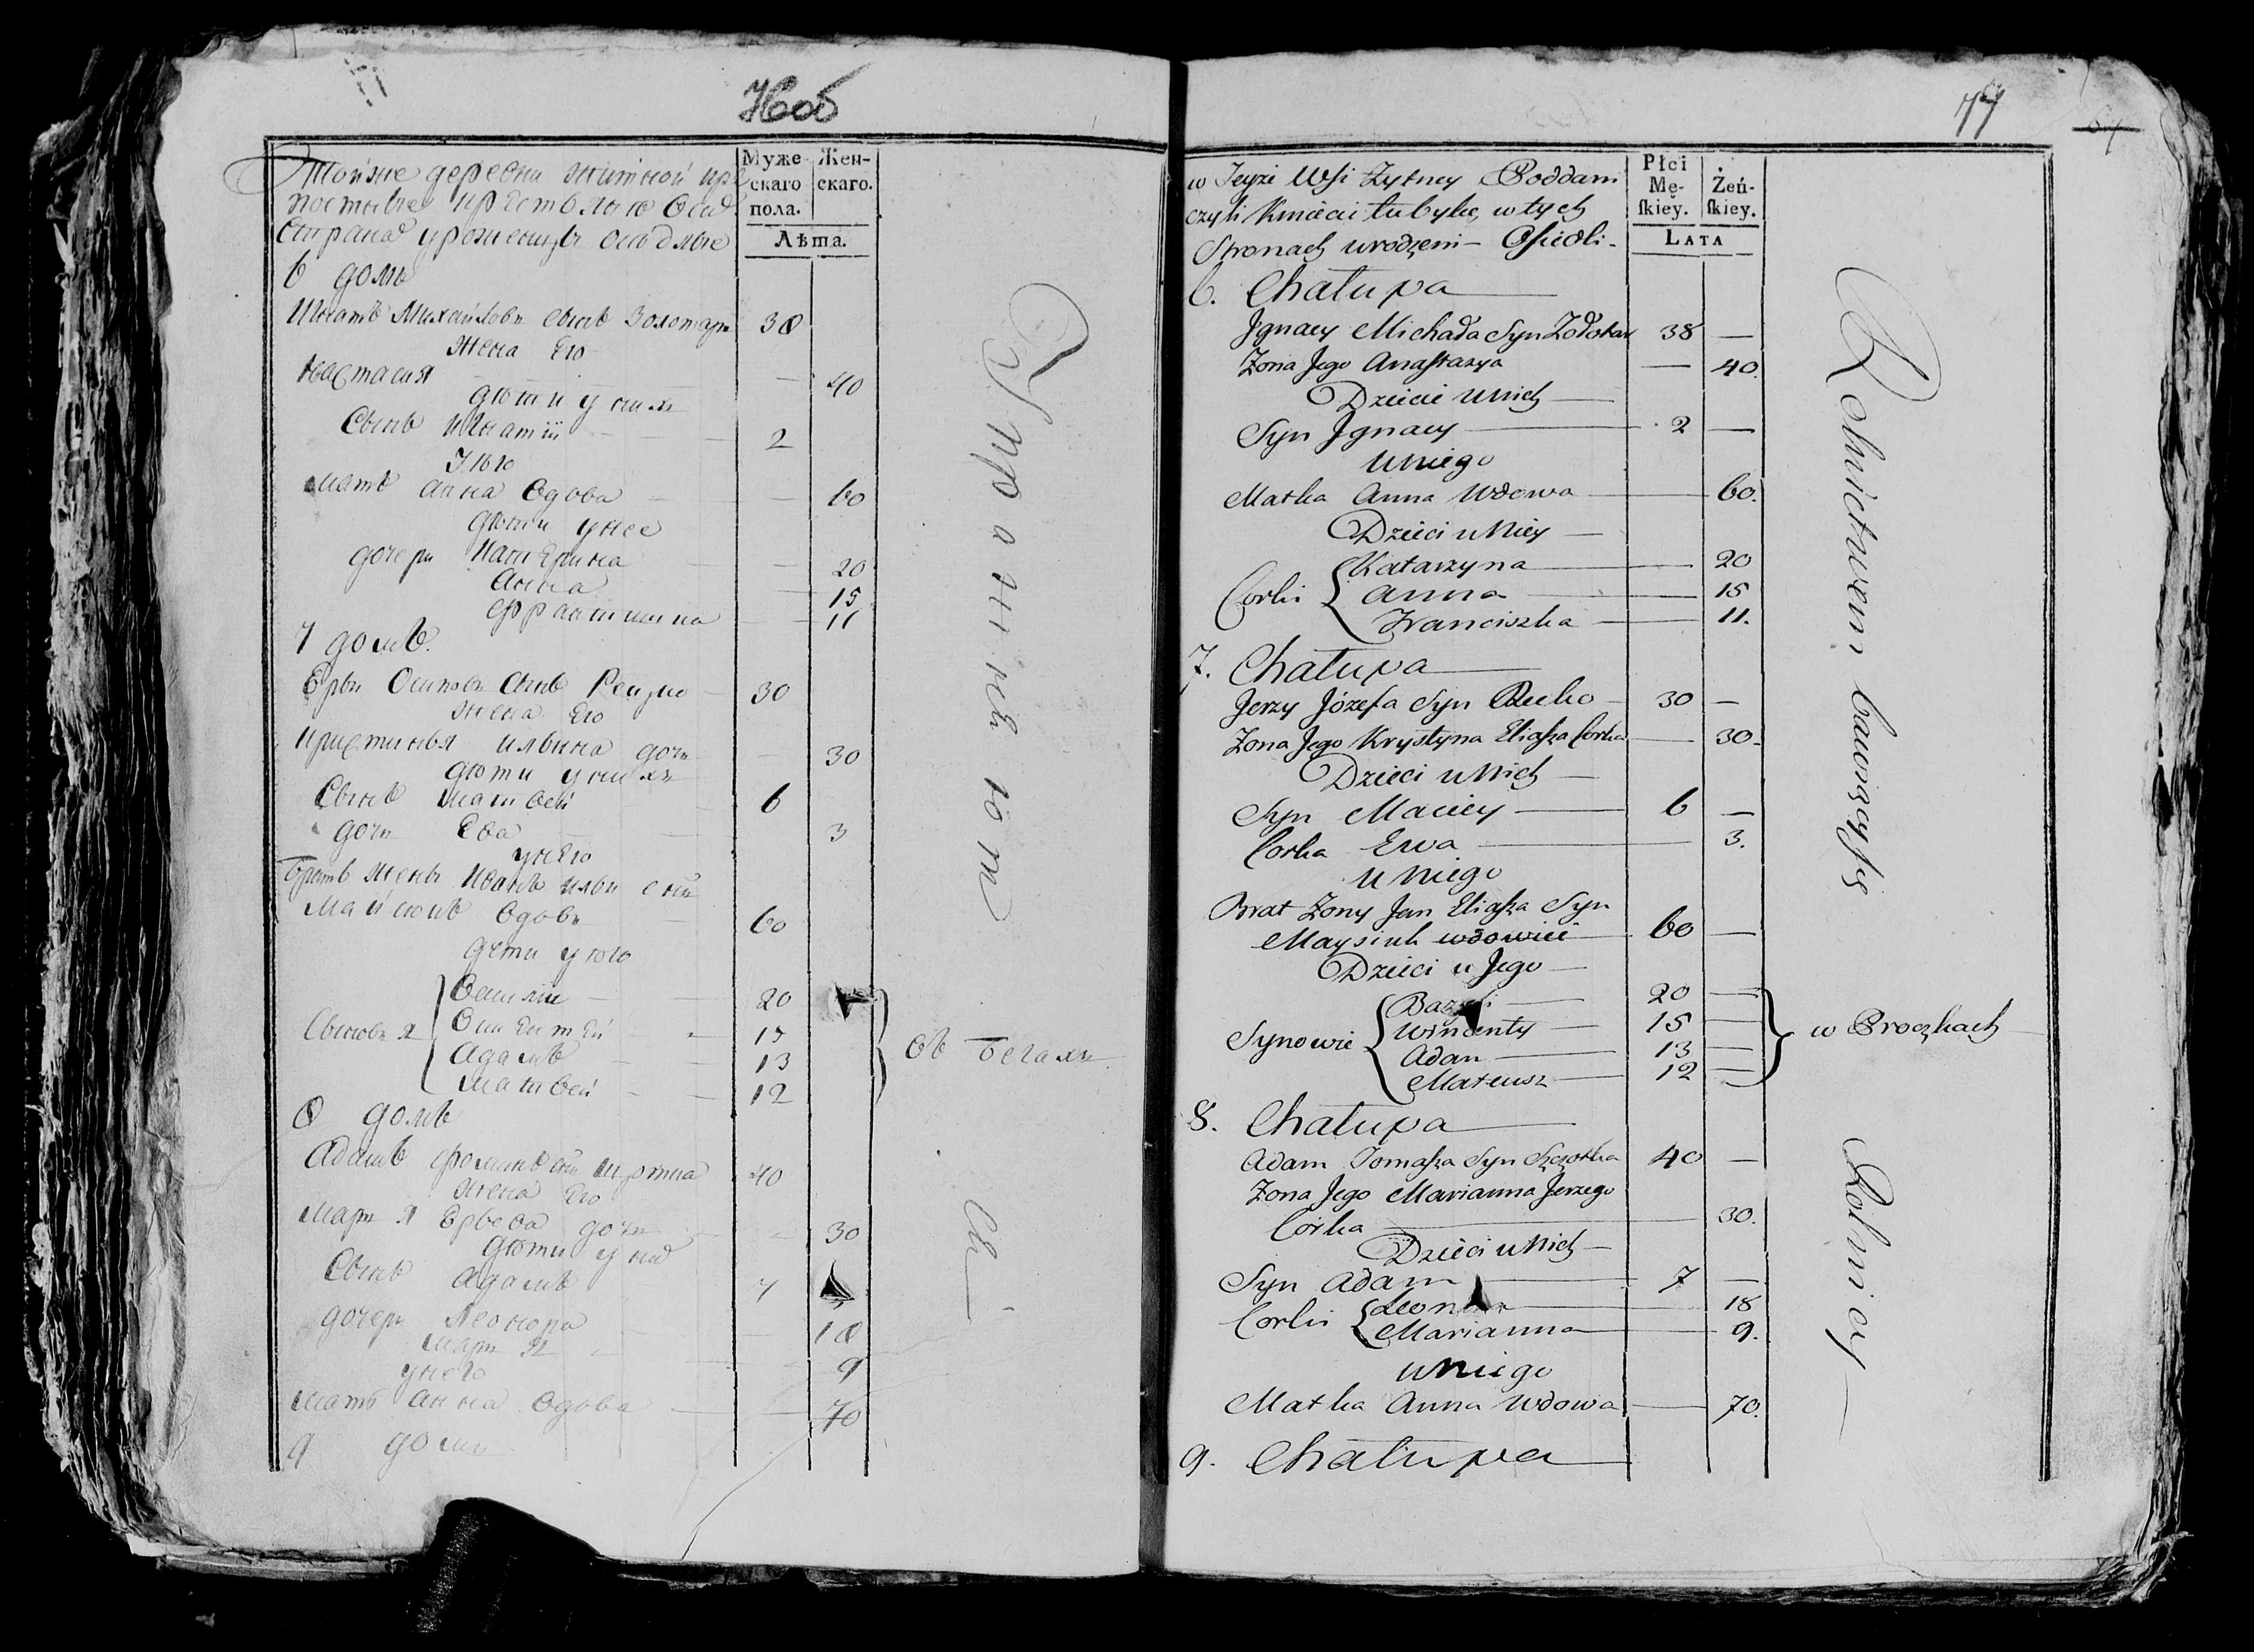 76об
Муже-
скаго
пола.
Жен-
скаго.
Лѣта.
Тойже деревни Житной кре
Стран уроженцы оседлые
6 домъ
Игнатъ Михайловъ сынъ Золотарь 38
жена Его
Настасия — 40
дѣти у них
Сынъ Игнатiй 2
У Него
мать Анна вдова — 60
дѣти у нее
дочери Катерина — 20
Анна — 15
Францишка — 11
7 домъ.
Осиповъ сынъ 30
жена Его
Кристинья Ильина дочь — 30
дѣти у нихъ
Сынъ Матвей 6
дочь Ева — 3
у нЕго
братъ жены Иванъ Ильи сынъ
вдовъ 60
дети у Него
Сыновья
Василiй 20
Викентей 15
Адамъ 13
Матвей 12
Въ бегахъ
8 домъ
Адамъ Фоминъ сынъ 40
жена Его
Марья дочь — 30
дѣти у них
Сынъ Адамъ 7
дочери Леонора 18
Марья 9
у него
мать Анна вдова — 70
9 домъ
77
64
Płci
Mę-
ſkiey.
Żeń-
ſkiey.
Lata
w Teyże Wsi Żytney Poddani
czyli Kmieci tubylcy w tych
Stronach urodzeni – Osiedli-
6. Chałupa
Jgnacy Michała Syn Zołotar 38 —
Żona Jego Anastazya — 40.
Dzieci u Nich —
Syn Jgnacy — 2 —
u Niego
Matka Anna Wdowa — 60.
Dzieci u Niey —
Corki
Katarzyna — 20
Anna — 15
Franciszka — 11.
7. Chałupa
Jerzy Józefa Syn 30 —
Żona Jego Krystyna Eliasza Corka — 30.
Dzieci u Nich —
Syn Maciey — 6 —
Corka Ewa — 3.
u Niego
Brat Żony Jan Eliasza Syn
Maysiuk wdowiec 60 —
Dzieci u Jego —
Synowie
Bazyli — 20 —
Wincenty — 15 —
Adam — 13 —
Mateusz — 12 —
w Broczkach
8. Chałupa
Adam Tomasza Syn Szczotka 40 —
Żona Jego Marianna Jerzego
Corka — 30.
Dzieci u Nich —
Syn Adam — 7 —
Corki
Leonora — 18
Marianna — 9.
u Niego
Matka Anna Wdowa — 70.
9. Chałupa
Rolnictwem bawiący się
Rolnicy —